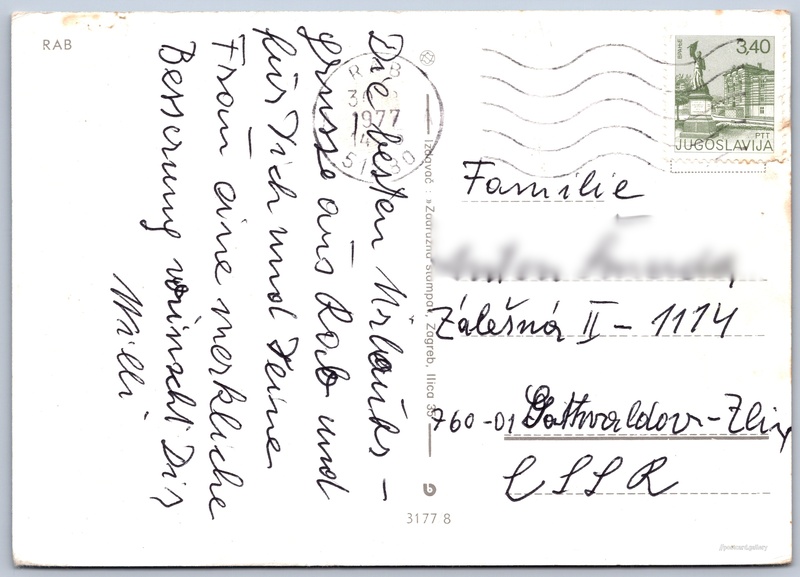 RAB
Die besten Urlaubs-
grüsse aus Rab und
für Dich und Deine
Frau eine merkliche
Besserung wünscht Dir
Willi
RAB
1977
51280
3,40
VRANJE
PTT
JUGOSLAVIJA
Izdavač: »Zadružna štampa«, Zagreb, Ilica 35
3177 8
Familie
Zálešná II - 1114
760-01 Gottwaldov-Zlín
ČSSR